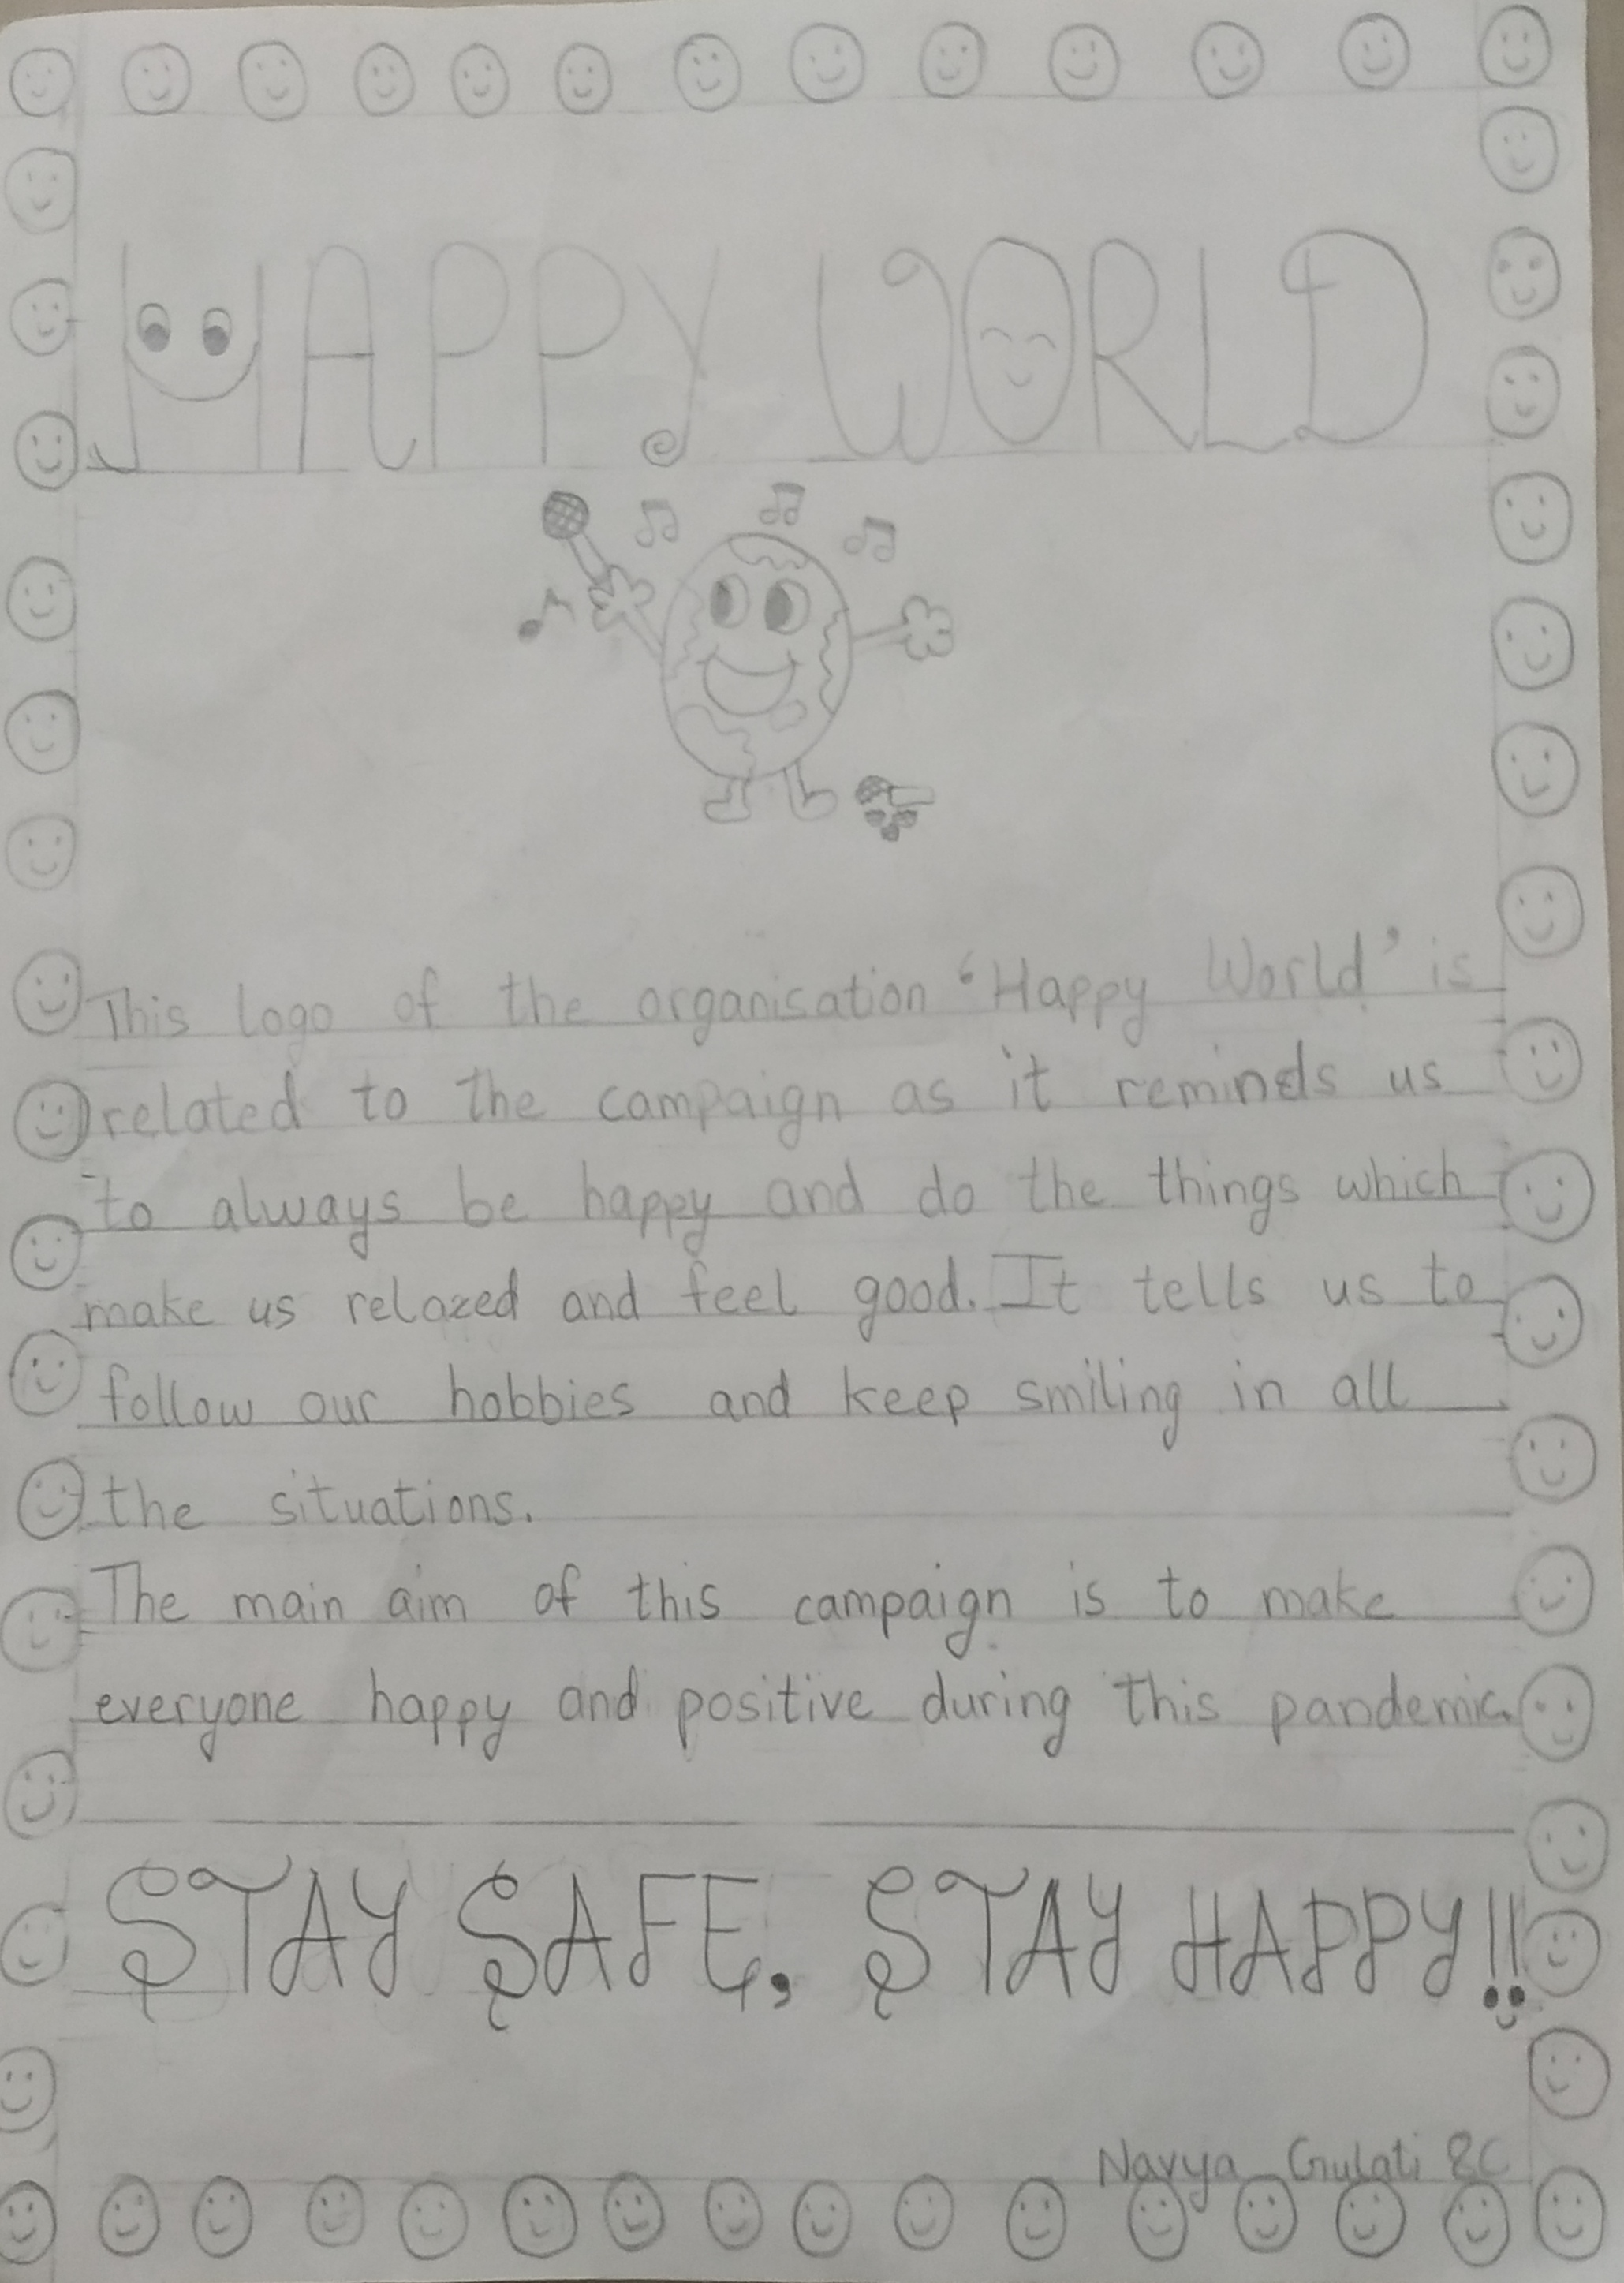 HAPPY WORLD
This logo of the organisation 'Happy World' is
related to the campaign as it reminds us
to always be happy and do the things which
make us relaxed and feel good. It tells us to
follow our hobbies and keep smiling in all
the situations.
The main aim of this campaign is to make
everyone happy and positive during this pandemic.
STAY SAFE, STAY HAPPY!!
Navya Gulati 8C